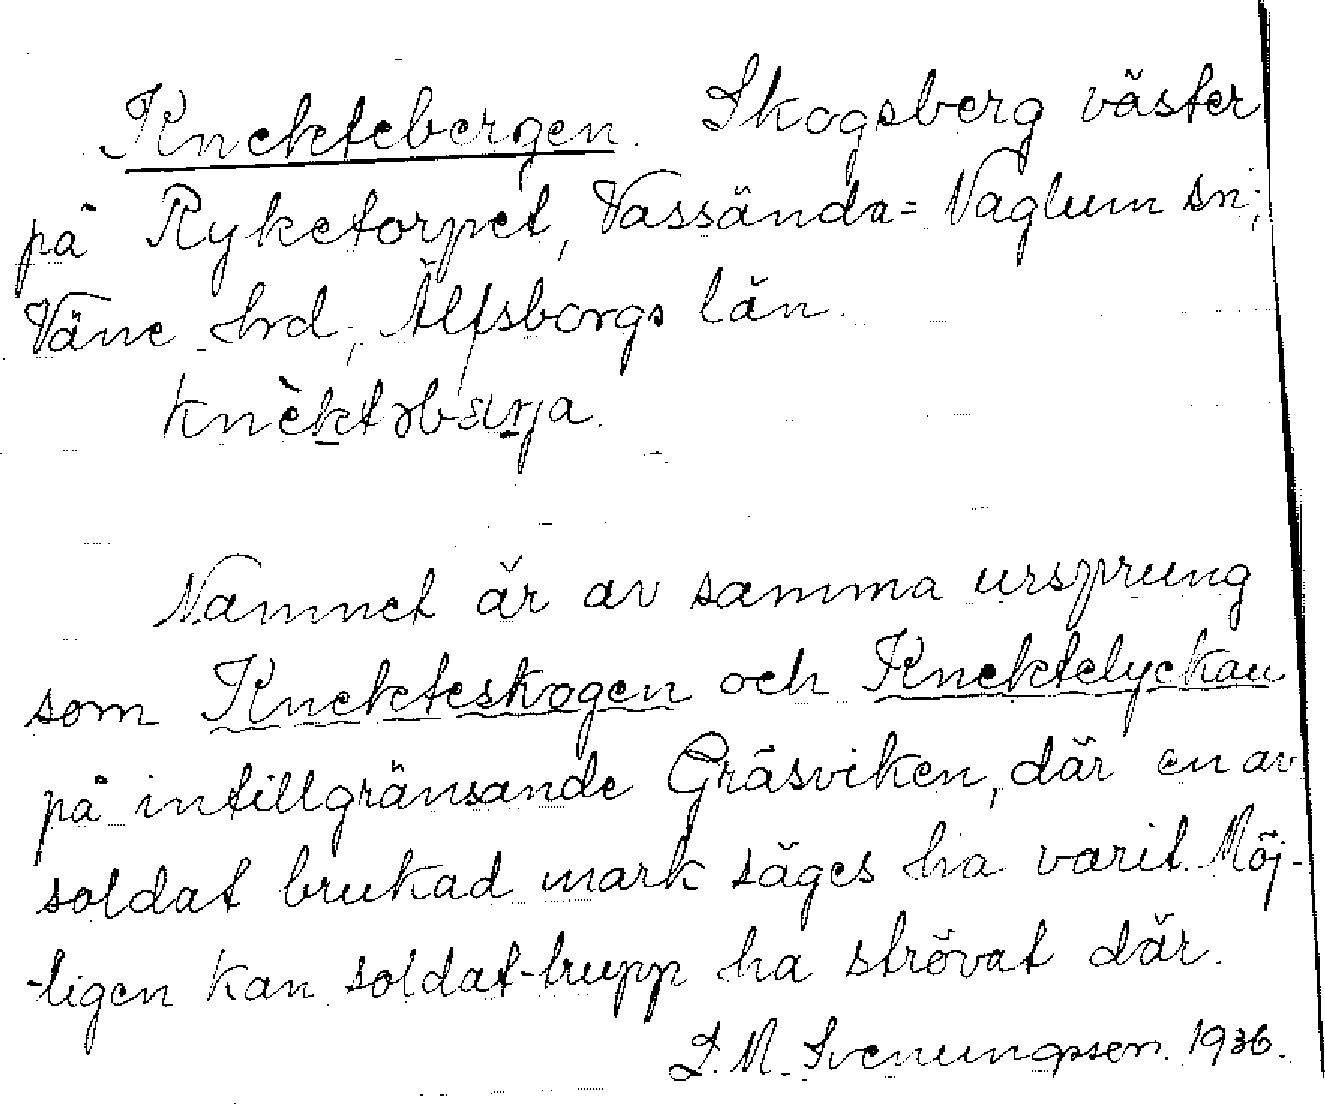 Knektebergen. Skogsberg väster
på Ryketorpet, Vassända=Naglum sn;
Väne hrd, Älfsborgs län.
knèktəbærja.
Namnet är av samma ursprung
som Knekteskogen och Knektelyckan
på intillgränsande Gräsviken, där en av
soldat brukad mark säges ha varit. Möj-
-ligen kan soldat-trupp ha strövat där.
S. M. Svenungsson. 1936.